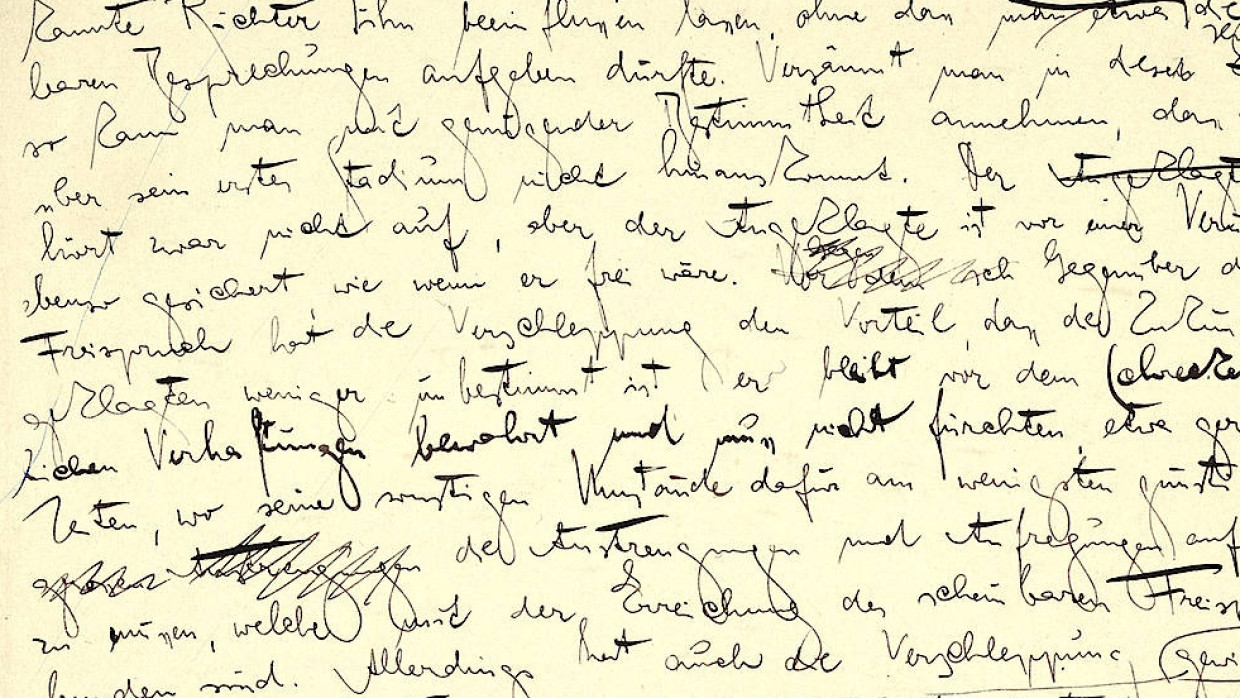 kannte Richter führ beeinflussen lassen, ohne dass man etwas
baren Besprechungen aufgeben dürfte. Versäumt man in dieser
so kann man mit genügender Bestimmtheit annehmen, dass
über sein erstes Stadium nicht hinauskommt. Der Angeklagte
hört zwar nicht auf, aber der Angeklagte ist vor einer
ebenso gesichert, wie wenn er frei wäre. sch Gegenüber
Freispruch hat die Verschleppung den Vorteil, dass die
geklagten weniger unbestimmt ist er bleibt vor dem
lichen Verhaftungen bewahrt und muss nicht fürchten, etwa
Zeiten, wo seine sonstigen Umstände dafür am wenigsten
die Anstrengungen und Aufregungen auf
zu müssen, welche mit der Erreichung des scheinbaren
bunden sind. Allerdings hat auch die Verschleppung,